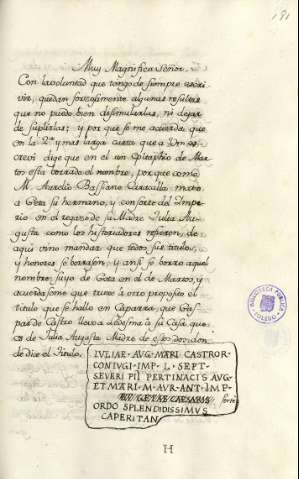 181
Muy Magnifico Señor.
Con la voluntad que tengo de siempre escri-
vir, quedan forzosamente algunas
que no puedo bien dissimularlas, ni dejar
de suplirlas; y por que se me acuerda que
en la 2ª y mas larga carta que a Vm es-
creví dige que en el un Epitaphio de Mar-
tos esta borrado el nombre, porque como
M. Aurelio Bassiano Caracalla mato
a Geta su hermano, y consorte del Impe-
rio en el regazo de su Madre Julia Au-
gusta como los historiadores refieren, de
aqui vino mandar que todos sus titulos,
y honores se borrasen; y ansi se borro aquel
nombre suyo de Geta en el de Martos, y
acuerdaseme que tuve a otro proposito el
titulo que se hallo en Caparra, que Gas-
par de Castro llevó a su Casa, que
es de Julia Augusta Madre de estos don-
de dice el Titulo.
IVLIAE·AVG·MARI CASTROR·
CONIVGI·IMP·L·SEPT·
SEVERI PII PERTINACIS AVG
ET MARI·M·AVR·ANT·IMP·
GETAE CAESARIS
ORDO SPLENDIDISSIMVS
CAPERITAN
BIBLIOTECA PUBLICA
TOLEDO
H